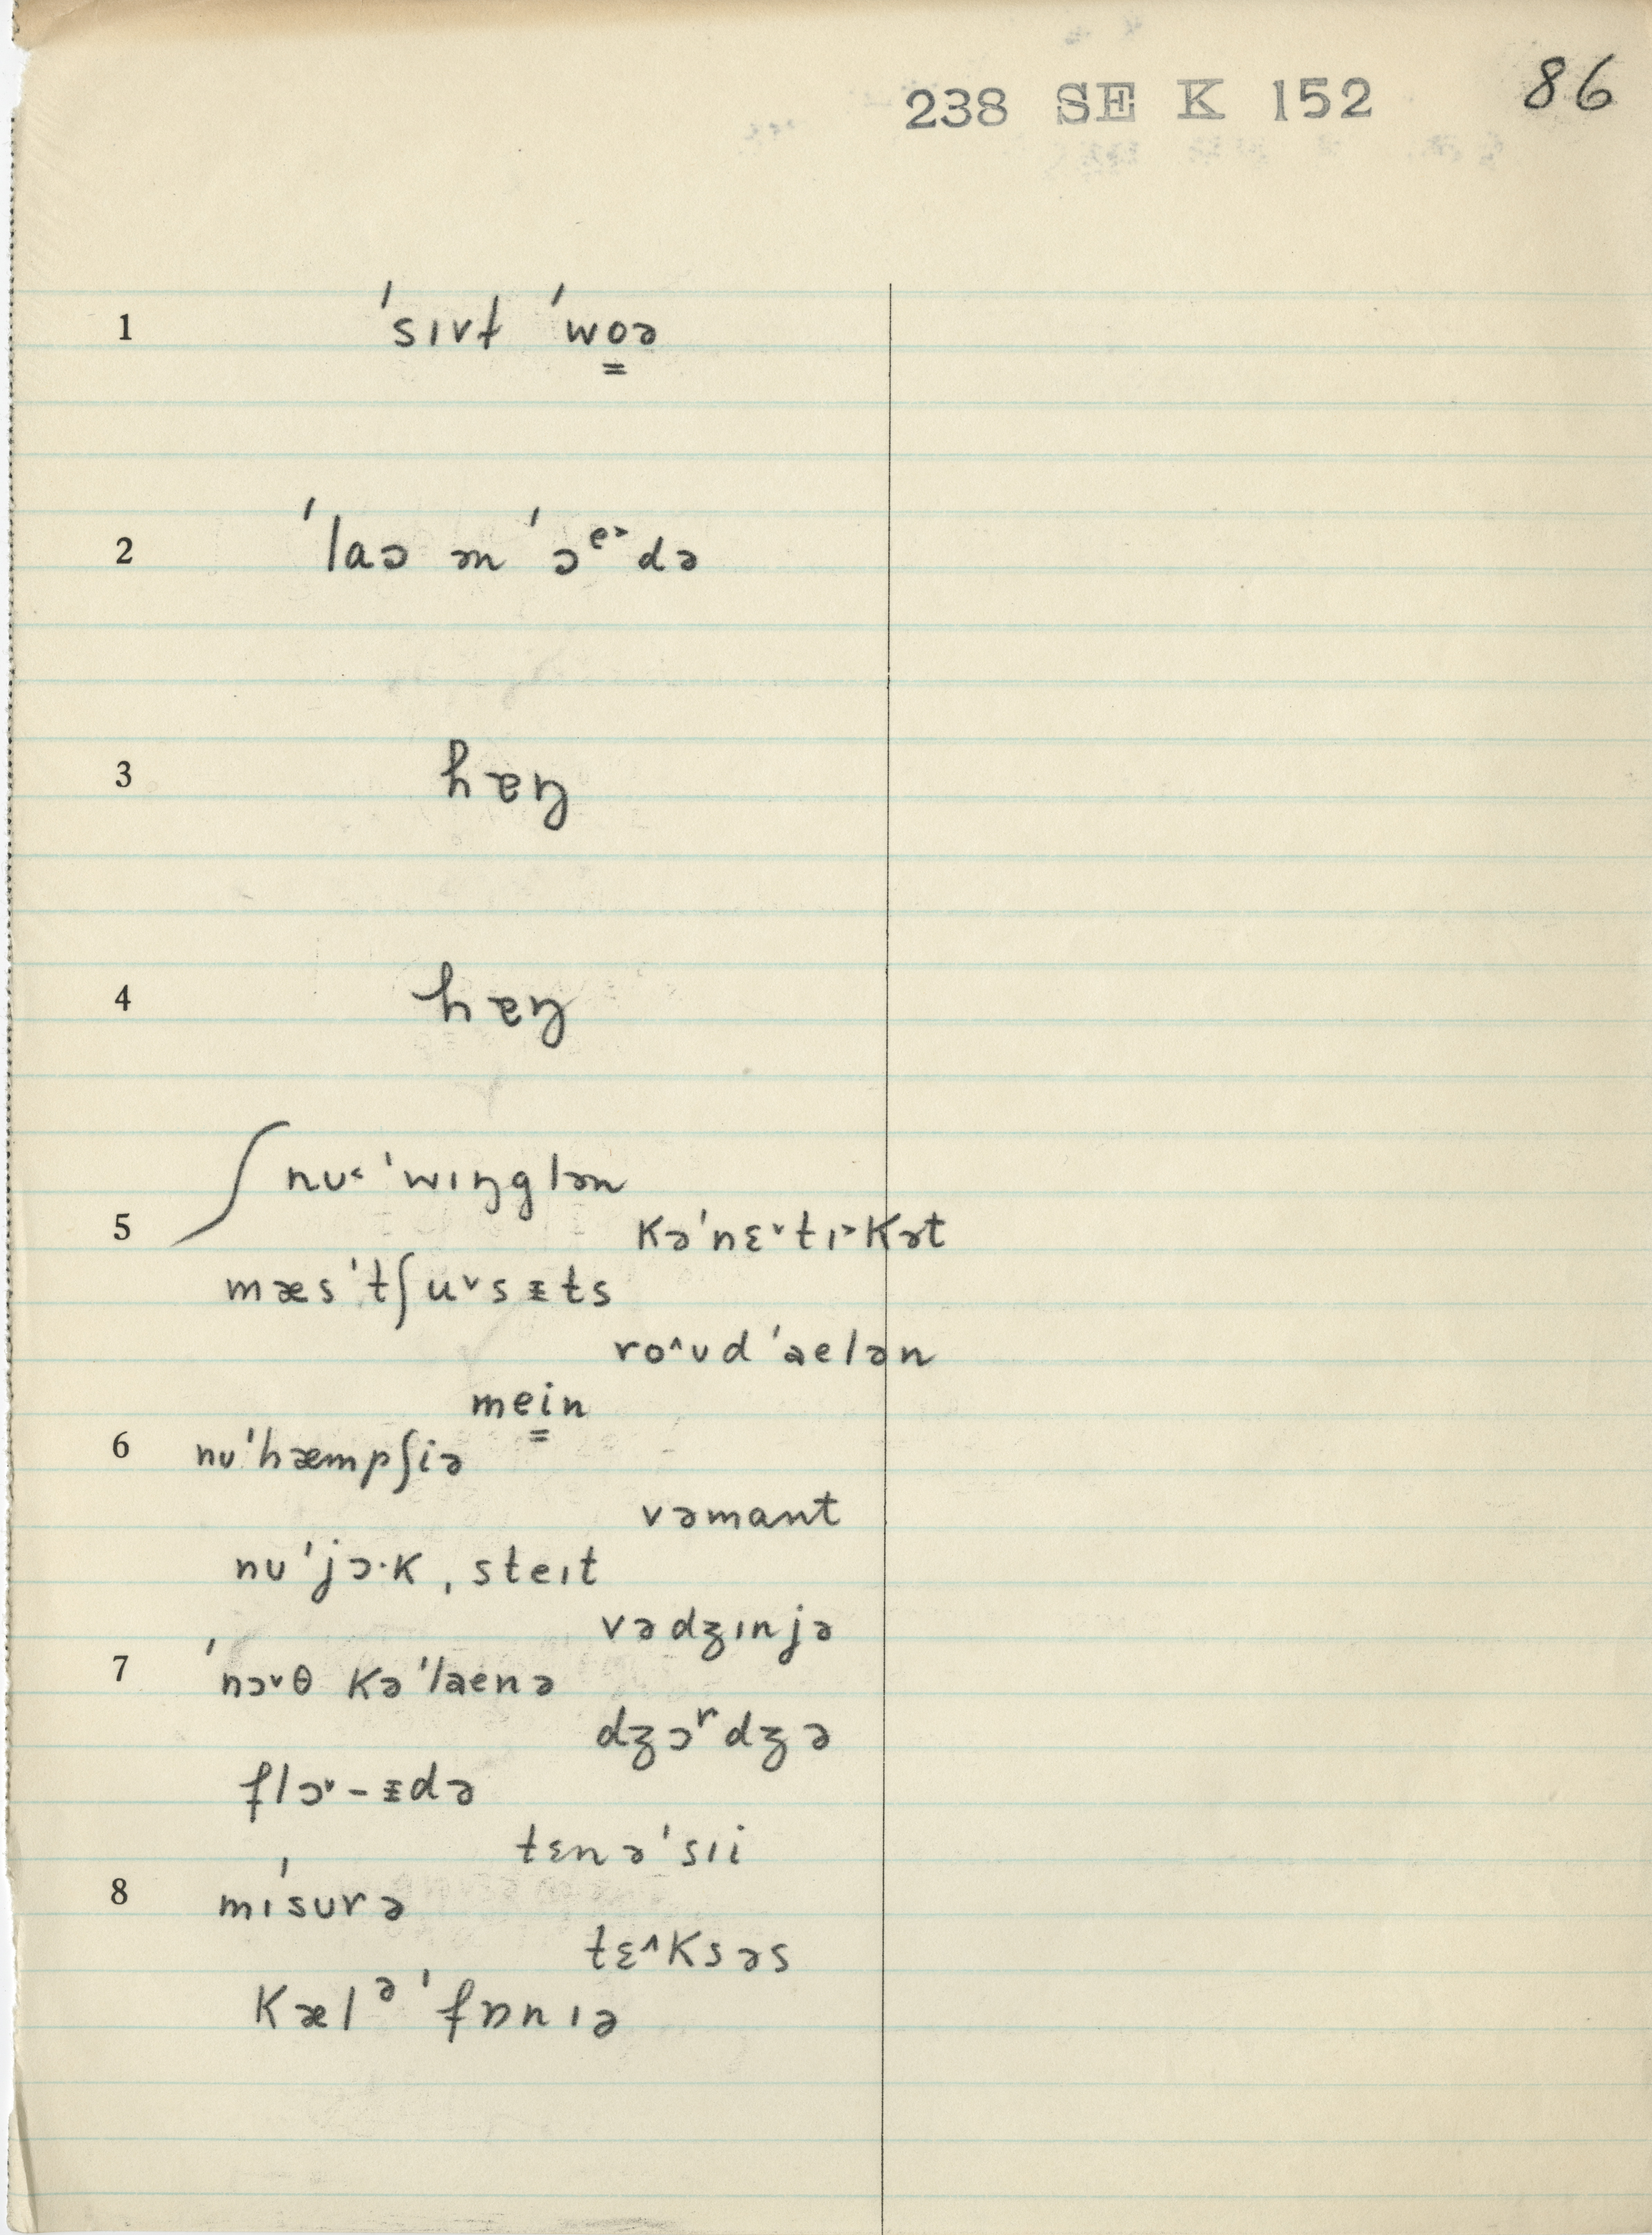 238 SE K 152 86
1 ˈsɪvɫ ˈwoə
2 ˈlaɔ ən ˈɔᵉ˃də
3 hɐŋ
4 hɐŋ
nu˂ ˈwɪŋglən
5 kəˈnɛ˅tɪ˃kət
mæsˈtʃu˅sᵻts
ro˄ʊd ˈaelən
mein
6 nuˈhæmpʃiə
vəmant
nuˈjɔ·k ˌsteɪt
vədʒɪnjə
7 ˈnɔ˅θ kəˈlaenə
dʒɔʳdʒə
flɔ˅-ᵻdə
tɛnəˈsɪi
8 mɪˈsʊrə
tɛ˄ksəs
kælᵊˈfɒnɪə